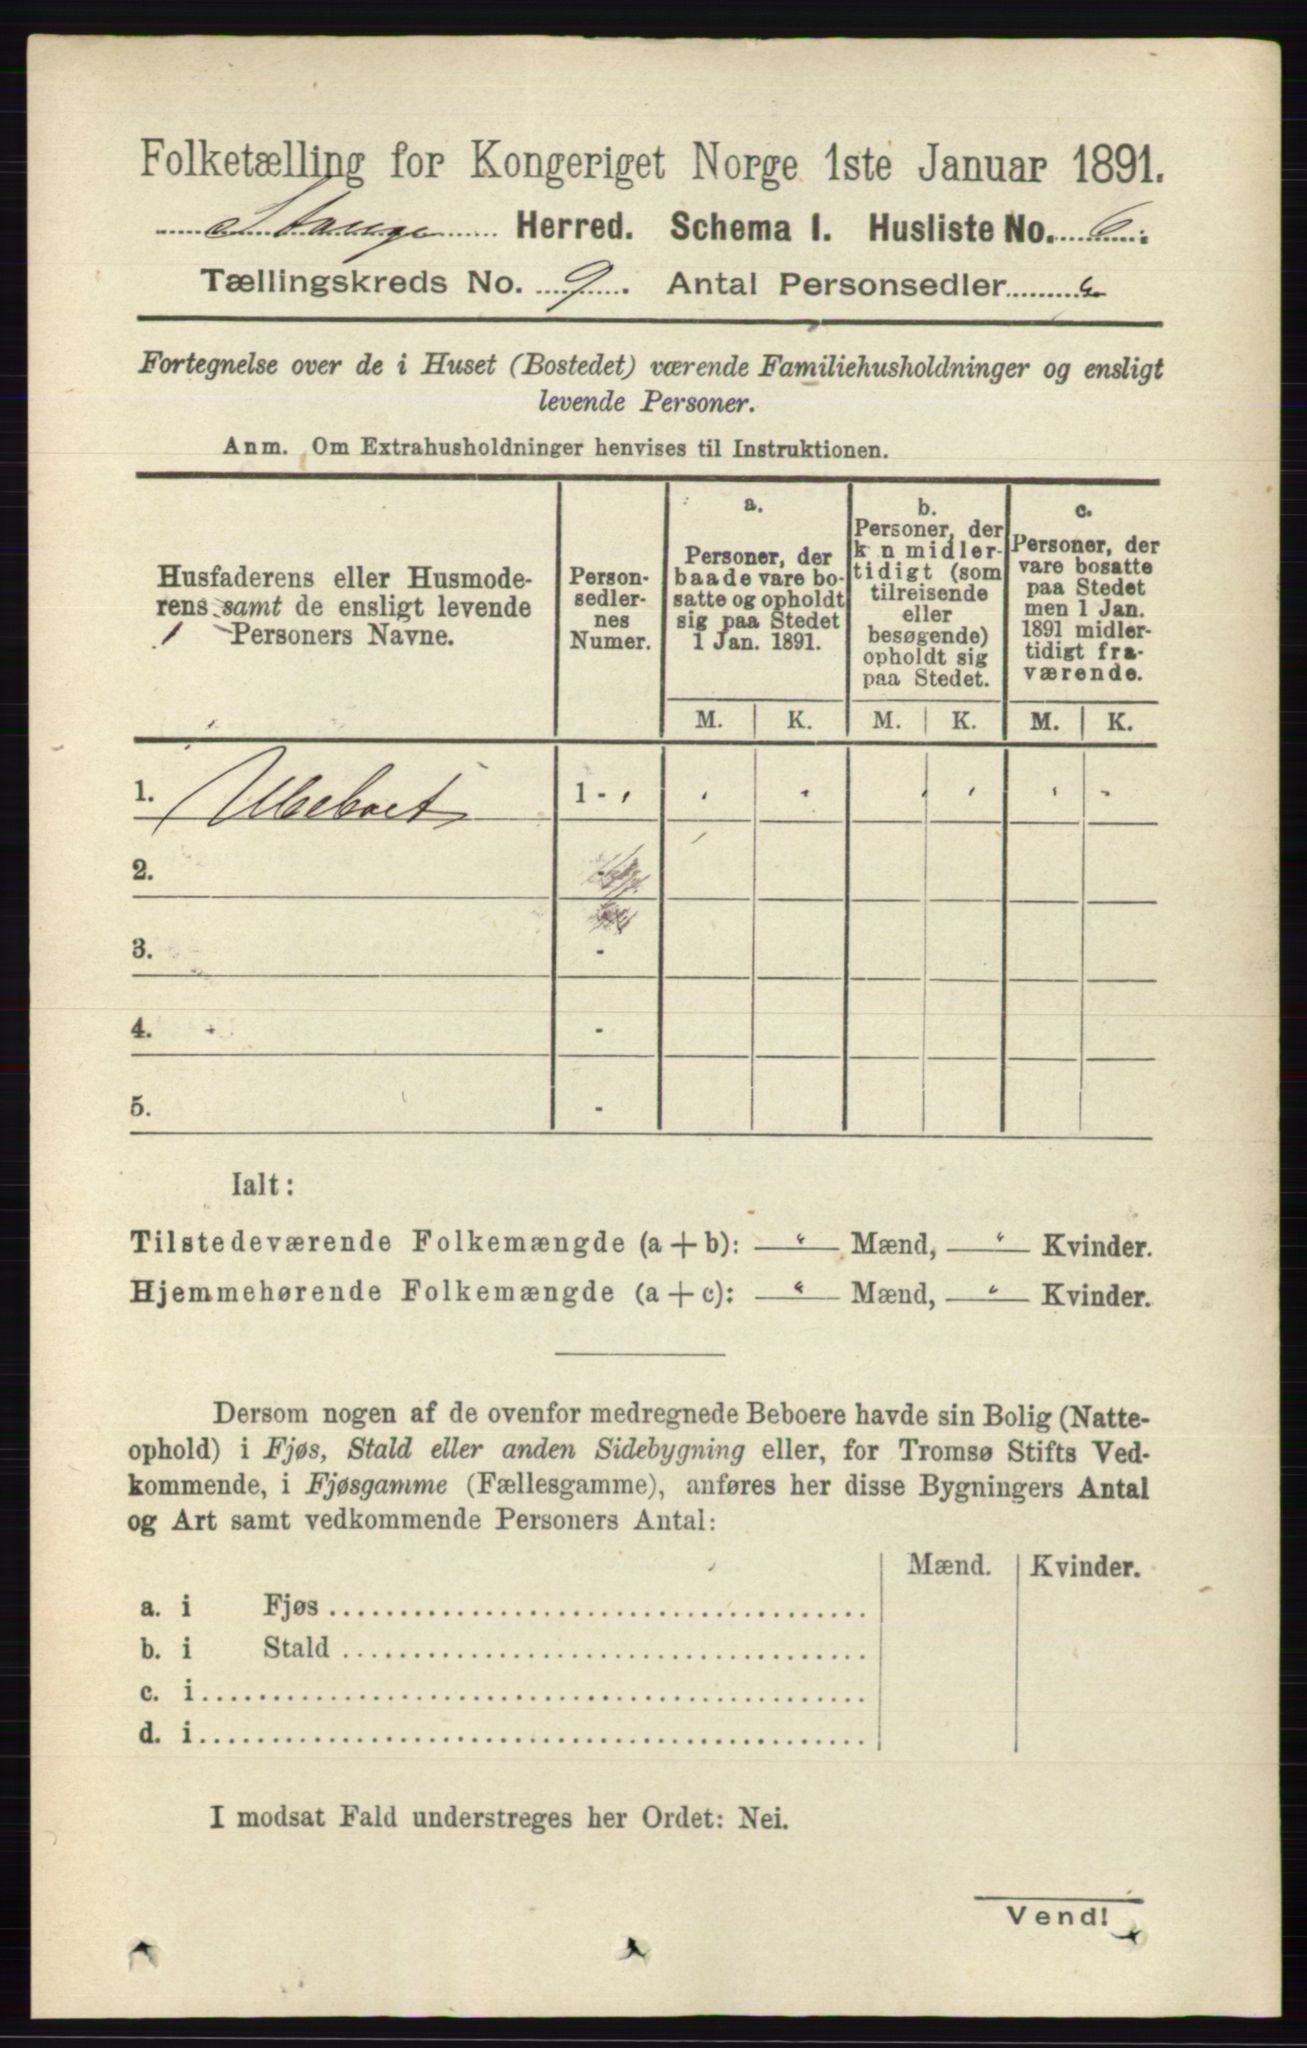 Folketælling for Kongeriget Norge 1ste Januar 1891.
Stange Herred. Schema I. Husliste No. 6.
Tællingskreds No. 9. Antal Personsedler "
Fortegnelse over de i Huset (Bostedet) værende Familiehusholdninger og ensligt
levende Personer.
Anm. Om Extrahusholdninger henvises til Instruktionen.
Husfaderens eller Husmode-
rens samt de ensligt levende
Personers Navne.
Person-
sedler-
nes
Numer.
a.
Personer, der
baade vare bo-
satte og opholdt
sig paa Stedet
1 Jan. 1891.
b.
Personer, der
k n midler-
tidigt (som
tilreisende
eller
besøgende)
opholdt sig
paa Stedet.
c.
Personer, der
vare bosatte
paa Stedet
men 1 Jan.
1891 midler-
tidigt fra-
værende.
M. K. M. K. M. K.
1. Ubeboet 1 - " " " " " " "
2.
3. -
4. -
5. -
Ialt:
Tilstedeværende Folkemængde (a + b): " Mænd, " Kvinder.
Hjemmehørende Folkemængde (a + c): " Mænd, " Kvinder.
Dersom nogen af de ovenfor medregnede Beboere havde sin Bolig (Natte-
ophold) i Fjøs, Stald eller anden Sidebygning eller, for Tromsø Stifts Ved-
kommende, i Fjøsgamme (Fællesgamme), anføres her disse Bygningers Antal
og Art samt vedkommende Personers Antal:
Mænd. Kvinder.
a. i Fjøs
b. i Stald
c. i
d. i
I modsat Fald understreges her Ordet: Nei.
Vend!